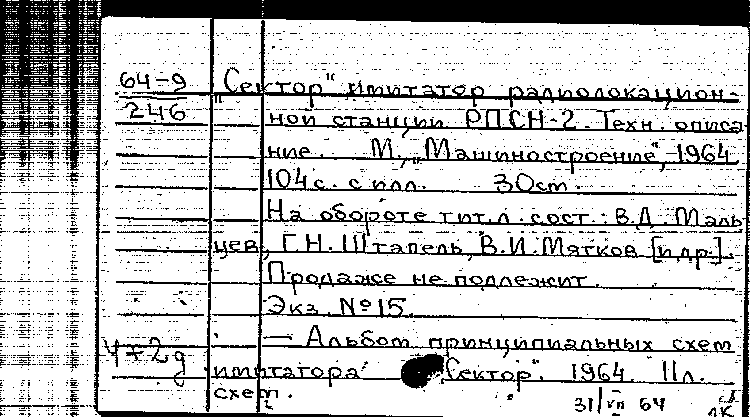 64-9 "Сектор" имитатор радиолокацион-
246 ной станции РПСН-2. Техн. описа
ние. М., "Машиностроение", 1964
104с. с илл. 30см.
На обороте тит.л. сост.: В.Д. Маль
цев, Г.Н. Штапель, В.И. Мятков [и др.].
Продаже не подлежит.
Экз. №15.
— Альбом принципиальных схем
имитатора "Сектор". 1964. 11л.
схем.
31/VII 64